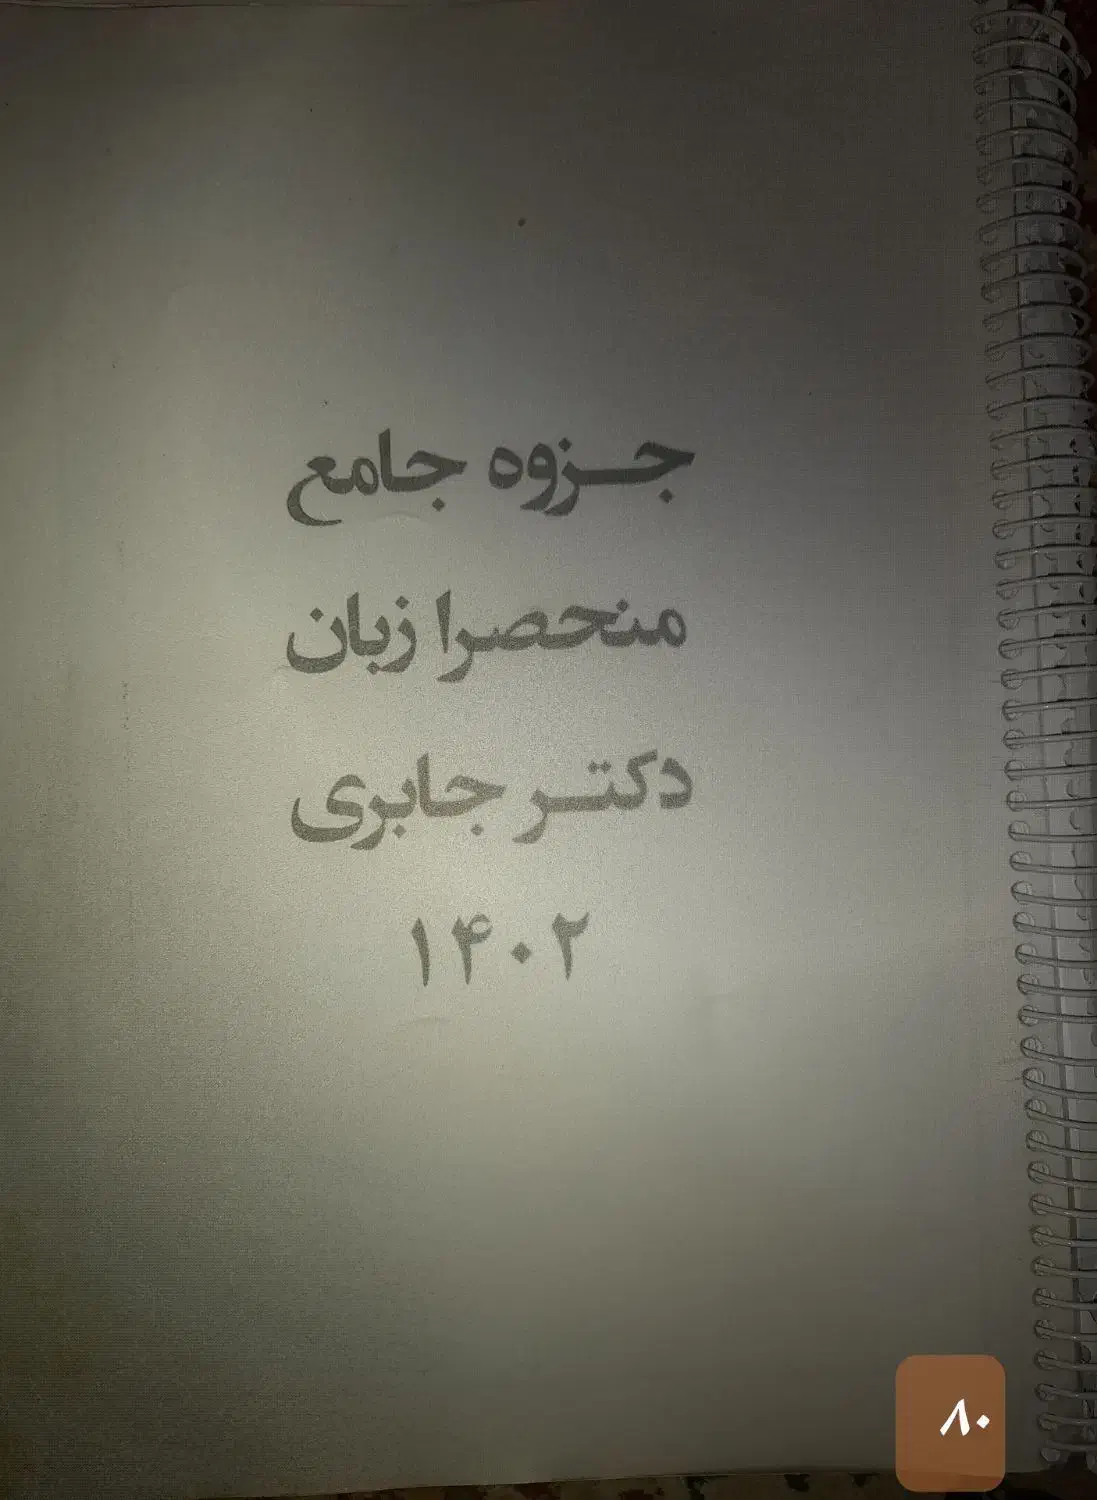 جزوه جامع
منحصرا زبان
دکتر جابری
۱۴۰۲
۸۰